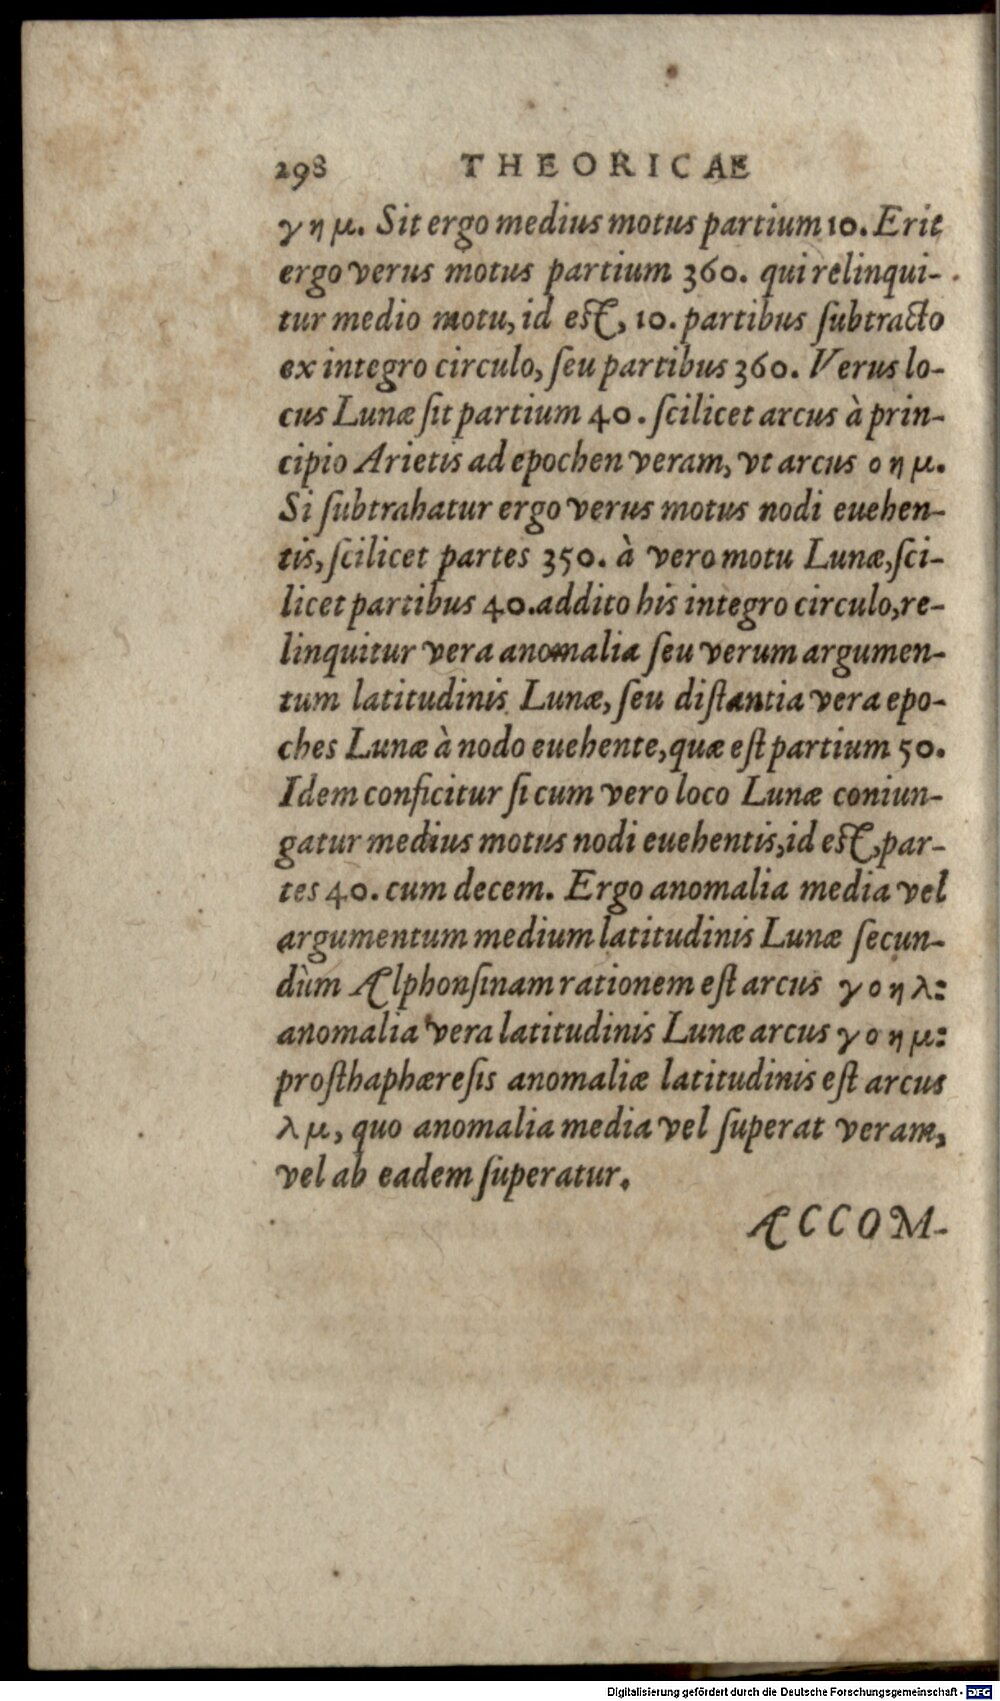 298 THEORICAE
γ η μ. Sit ergo medius motus partium 10. Erit
ergo verus motus partium 360. qui relinqui-
tur medio motu, id est, 10. partibus ſubtracto
ex integro circulo, ſeu partibus 360. Verus lo-
cus Lunæ ſit partium 40. ſcilicet arcus à prin-
cipio Arietis ad epochen veram, vt arcus ο η μ.
Si ſubtrahatur ergo verus motus nodi euehen-
tis, ſcilicet partes 350. à vero motu Lunæ, ſci-
licet partibus 40. addito his integro circulo, re-
linquitur vera anomalia ſeu verum argumen-
tum latitudinis Lunæ, ſeu diſtantia vera epo-
ches Lunæ à nodo euehente, quæ eſt partium 50.
Idem conficitur ſi cum vero loco Lunæ coniun-
gatur medius motus nodi euehentis, id est, par-
tes 40. cum decem. Ergo anomalia media vel
argumentum medium latitudinis Lunæ ſecun-
dùm Alphonſinam rationem eſt arcus γ ο η λ:
anomalia vera latitudinis Lunæ arcus γ ο η μ:
proſthaphæreſis anomaliæ latitudinis eſt arcus
λ μ, quo anomalia media vel ſuperat veram,
vel ab eadem ſuperatur.
ACCOM-
Digitalisierung gefördert durch die Deutsche Forschungsgemeinschaft - DFG